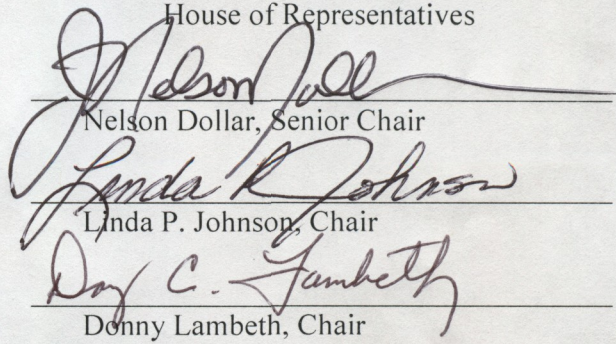 House of Representatives
J Nelson Doll
Nelson Dollar, Senior Chair
Linda P Johnson
Linda P. Johnson, Chair
C. Lambeth
Donny Lambeth, Chair